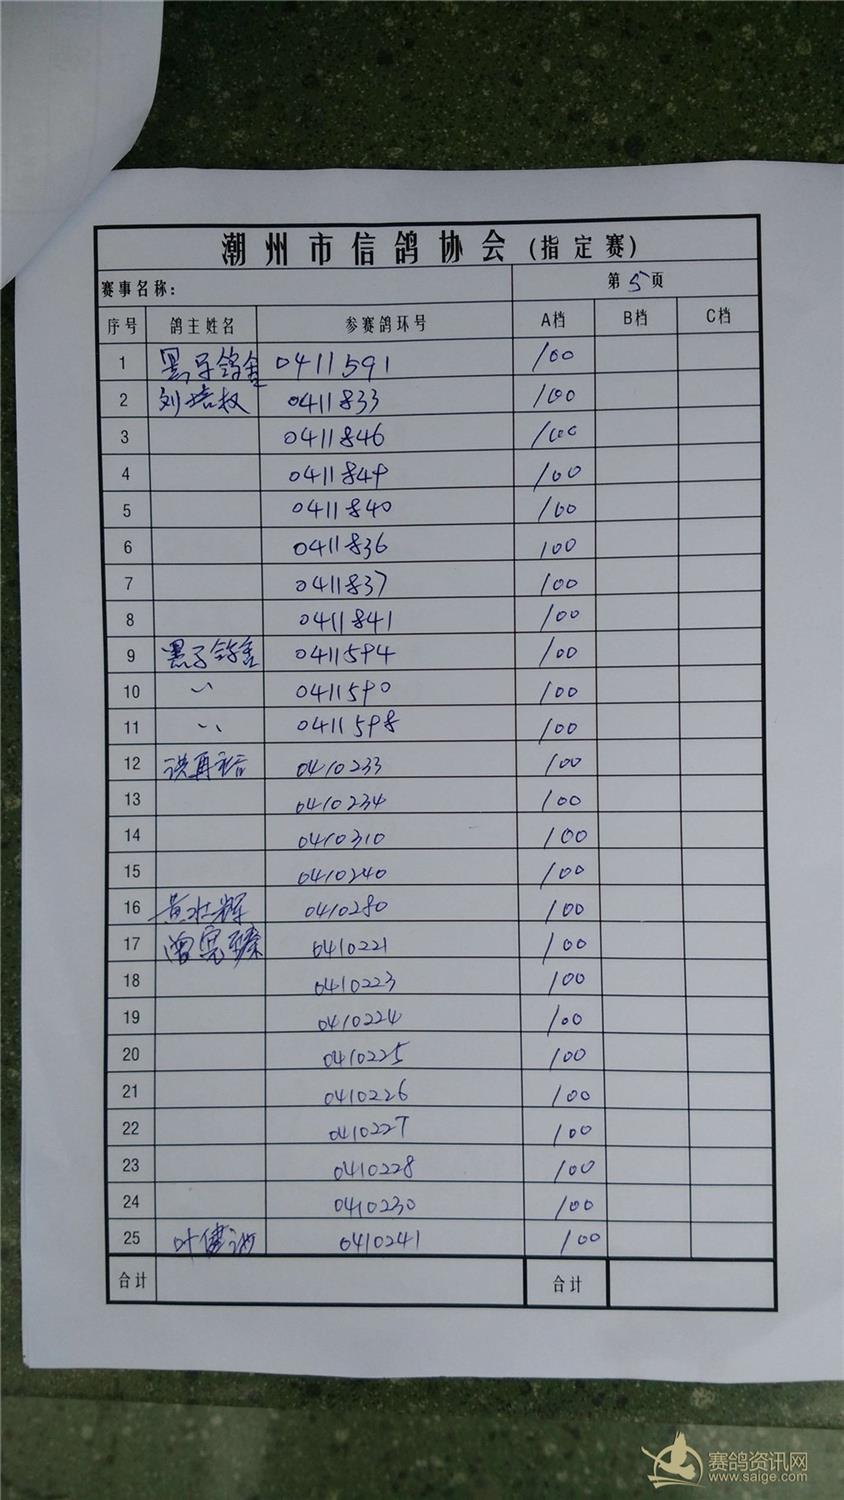 潮州市信鸽协会(指定赛)
赛事名称: 第5页
序号 鸽主姓名 参赛鸽环号 A档 B档 C档
1 黑子鸽舍 0411591 100
2 刘培权 0411833 100
3 0411846 100
4 0411849 100
5 0411840 100
6 0411836 100
7 0411837 100
8 0411841 100
9 黑子鸽舍 0411594 100
10 〃 0411590 100
11 〃 0411598 100
12 洪再 0410233 100
13 0410234 100
14 0410310 100
15 0410240 100
16 黄壮辉 0410280 100
17 曾 0410221 100
18 0410223 100
19 0410224 100
20 0410225 100
21 0410226 100
22 0410227 100
23 0410228 100
24 0410230 100
25 叶健 0410241 100
合计 合计
赛鸽资讯网
www.saige.com